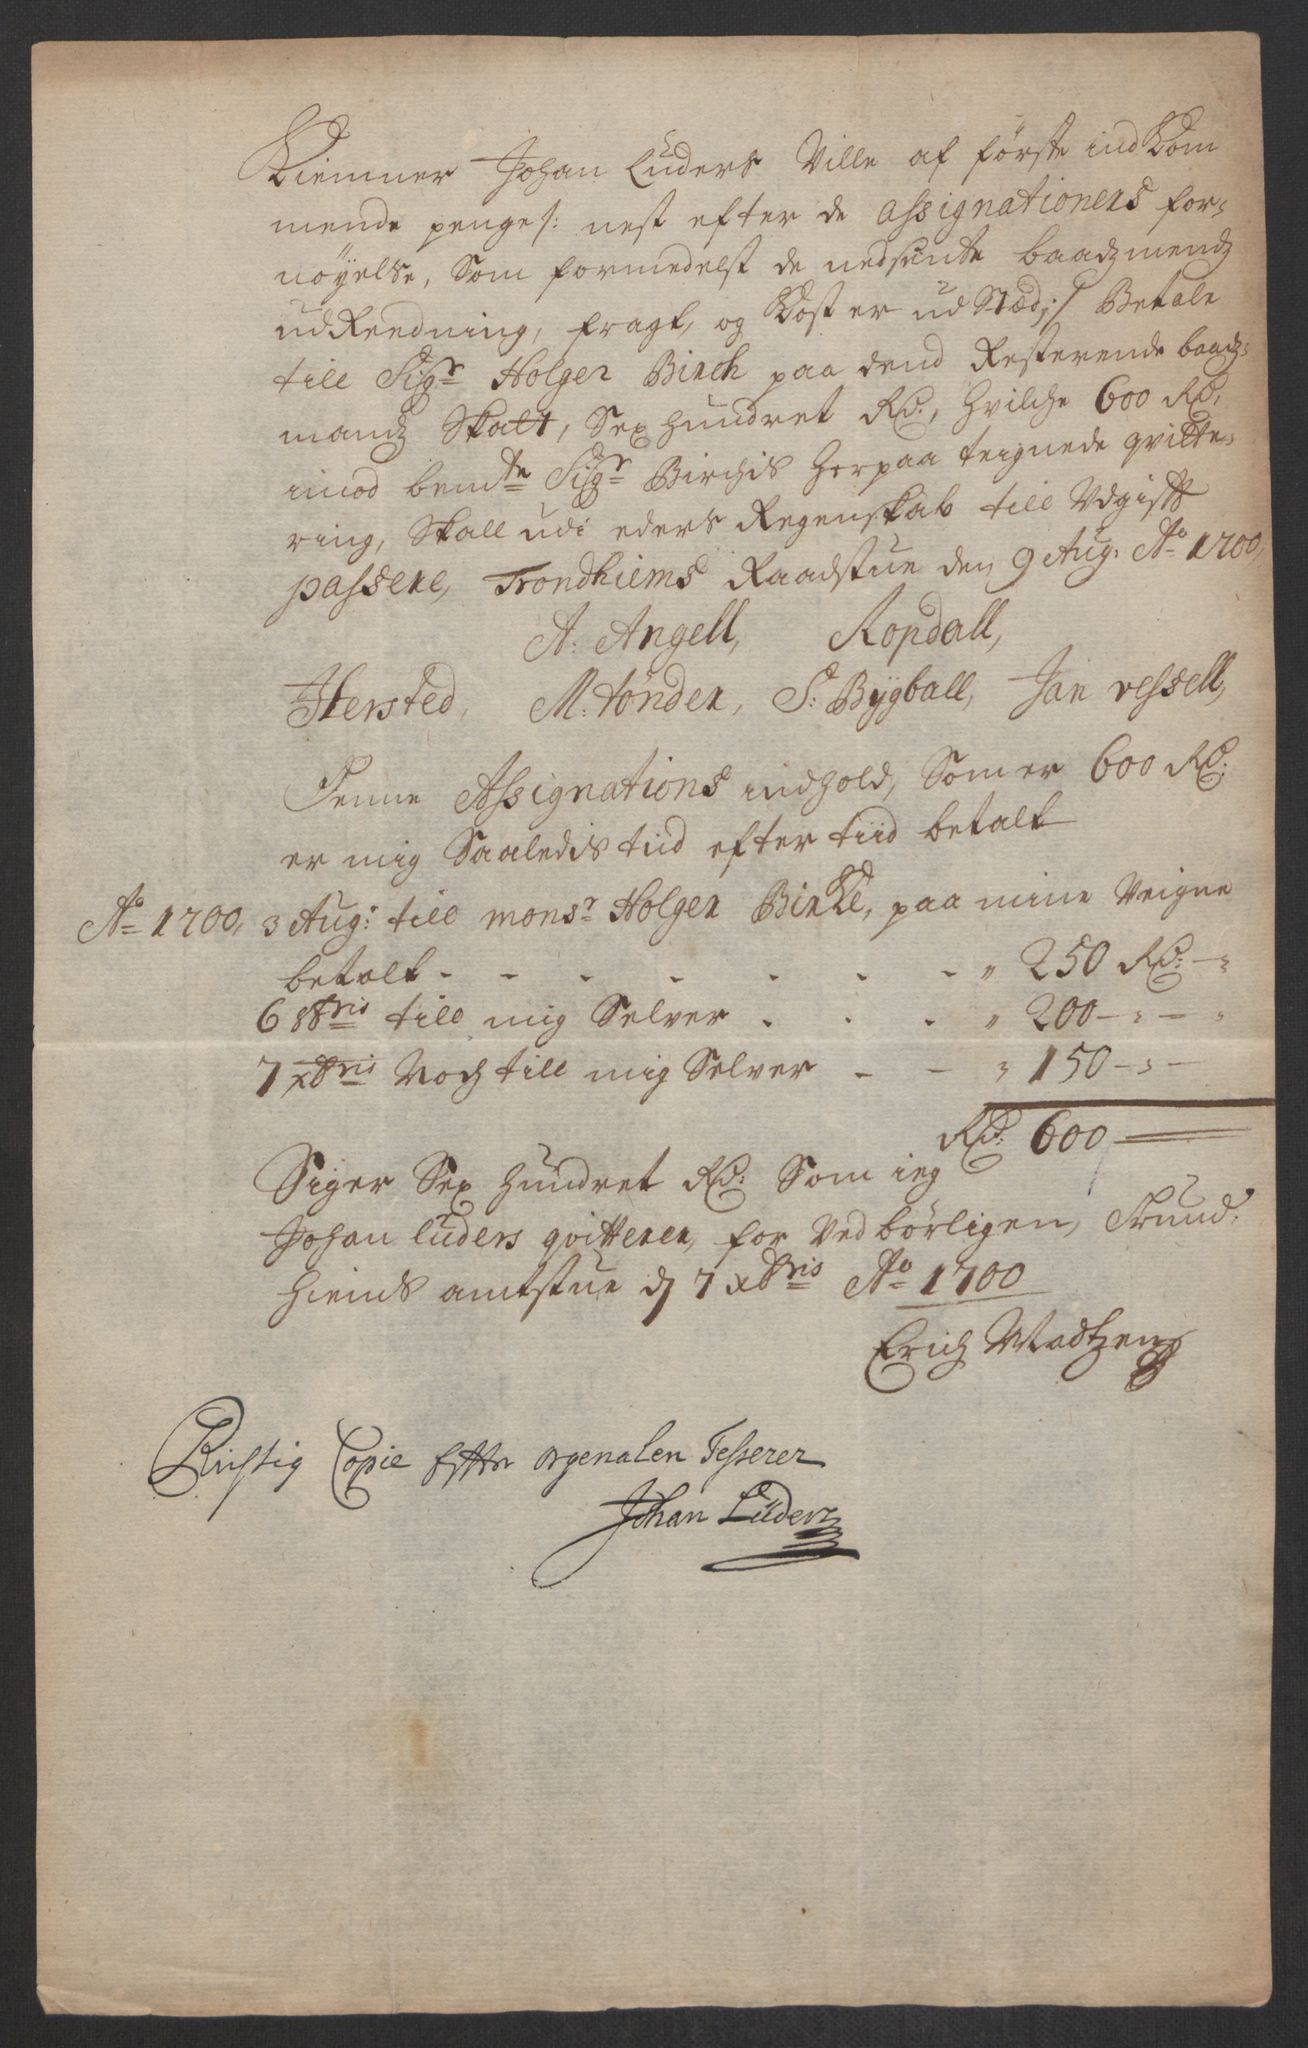 Kiemner Johan Luders Ville af förste ind Kom
mende penge /: nest efter de assignationers for-
nöyelse, Som formedelst de nedsente baadzmendz
udReedning, fragt, og Kost er ud Stæd :/ Betale
till Sigr Holger Birch paa dend Resterende baadz-
mandz Skatt, Sex hundret Rd., hvilche 600 Rd,
imod bemte Sigr Birchis herpaa teignede qvitte-
ring, Skall udi eders Regenskab till Vdgifft
passere, Trondhiems Raadstue den 9 Aug: Ao 1700,
A: Angell, Ropdall,
Hersted, M: tönder, S: Bÿgball, Jan vessell,
Denne Assignations indhold, Som er 600 Rd:
er mig Saaledis tiid efter tiid betalt
Ao 1700, 3 Aug: till monsr Holger Birke, paa mine Veigne
betalt - - - - - - - „ 250 Rd: - „
6 8bris till mig Selver - - - „ 200 - „ - „
7 xbris Noch till mig Selver - - „ 150 - „ -
Rd: 600
Siger Sex hundret Rd: Som ieg
Johan luders qvitterer, for Vedbörligen, Trund-
hiems amtstue dj 7 xbris Ao 1700
Erich Madtzen
Richtig Copie Effter orgenalen Tesserer
Johan Lüderz